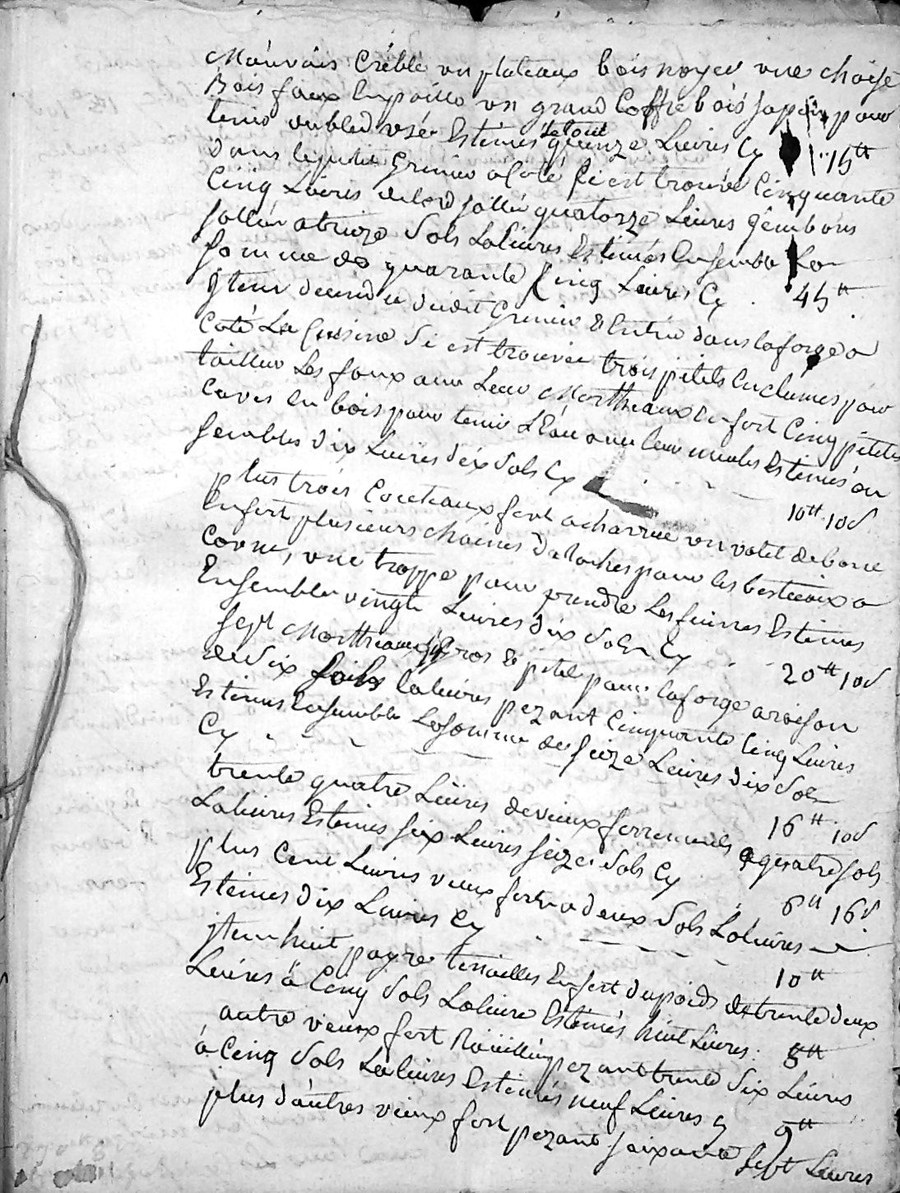 mauvais Crible un plateaux bois noyer une chaise
Bois faux En paille un grand Coffre bois sapin pour
tenir du bled usé Estimés le tout quinze Livres Cy 15tt
dans le petit Grenier a Coté sy est trouvée Cinquante
Cinq Livres de lard sallé quatorze Livres gembons
sallé a treize Sols La Livres Estimés Ensemble La
somme de quarante Cinq Livres Cy 45tt
Jtem decendu dudit Grenier & Entré dans la forge a
Coté La Cuisine si est trouvée trois petits Enclumes pour
tailler Les faux avec Leur Mortheaux En fert Cinq petites
Caves En bois pour tenir L'Eau avec leur meules Estimés en
sembles dix Livres dix Sols Cy 10tt 10s
plus trois Couteaux fert a charrue un volet de bone
En fert plusieurs chaines dattaches pour les bestieaux a
Corne, une trappe pour prendre Les fuinnes Estimés
Ensembles vingt Livres dix Sols Cy 20tt 10s
sept Mortheaux Gros & petit pour la forge a raison
de six sols la Livres pezant Cinquante Cinq Livres
Estimés Ensemble La somme de seize Livres dix Sols
Cy 16tt 10s
trente quatre Livres de vieux ferrements a quatre sols
La Livres Estimés six Livres seize Sols Cy 6tt 16s
plus Cent Livres vieux fert a deux Sols La Livres
Estimés dix Livres Cy 10tt
Jtem huit payre tenailles En fert du poids de trente deux
Livres à Cinq Sols La Livre Estimés huit Livres 8tt
autre vieux fert Rouillé pezant trente six Livres
à Cinq Sols La Livres Estimés neuf Livres Cy 9tt
plus d'autres vieux fert pezant soixante sept Livres